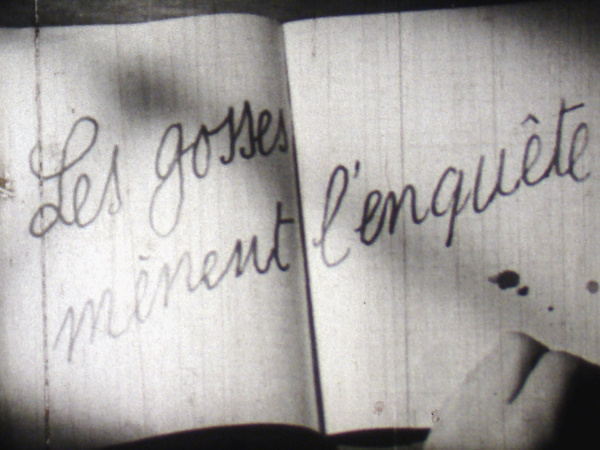 Les gosses
mènent l'enquête